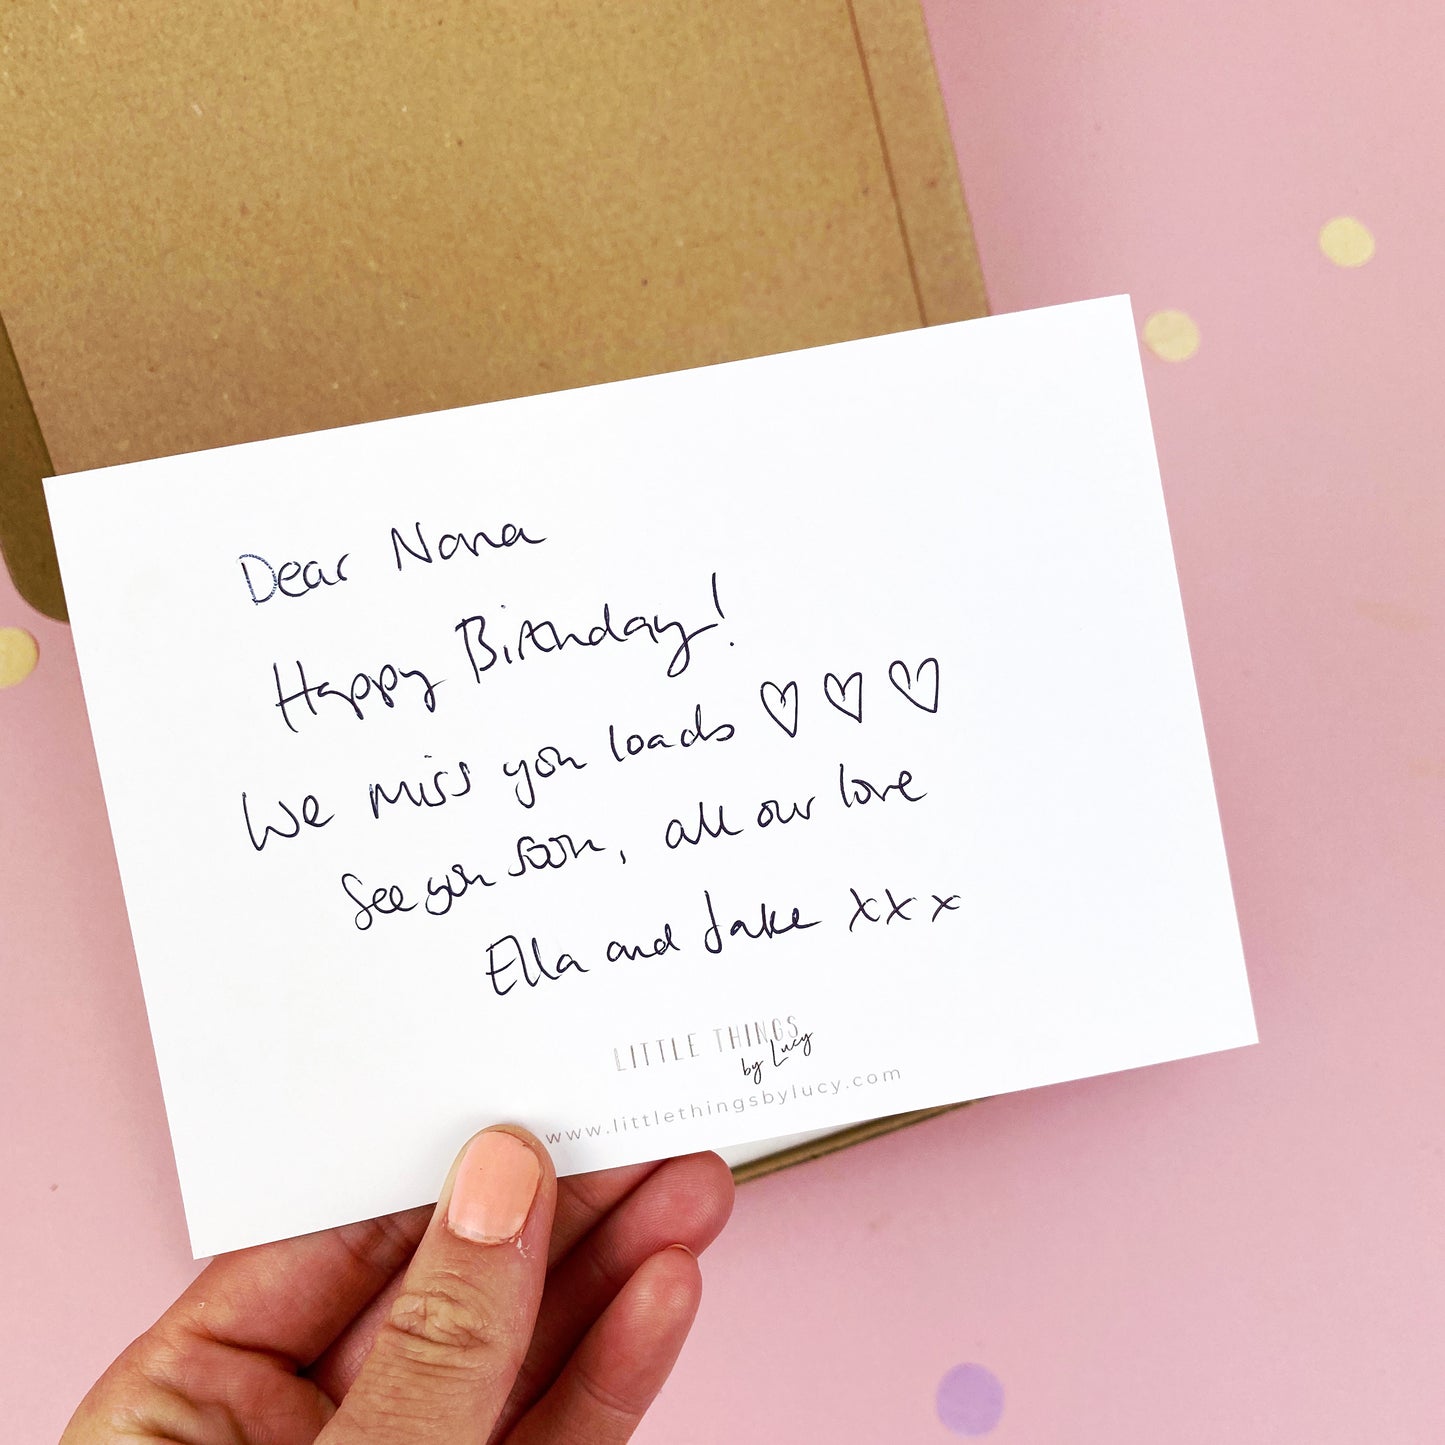 Dear Nana
Happy Birthday!
We miss you loads ♡ ♡ ♡
See you soon, all our love
Ella and Jake xxx
LITTLE THINGS
by Lucy
www.littlethingsbylucy.com